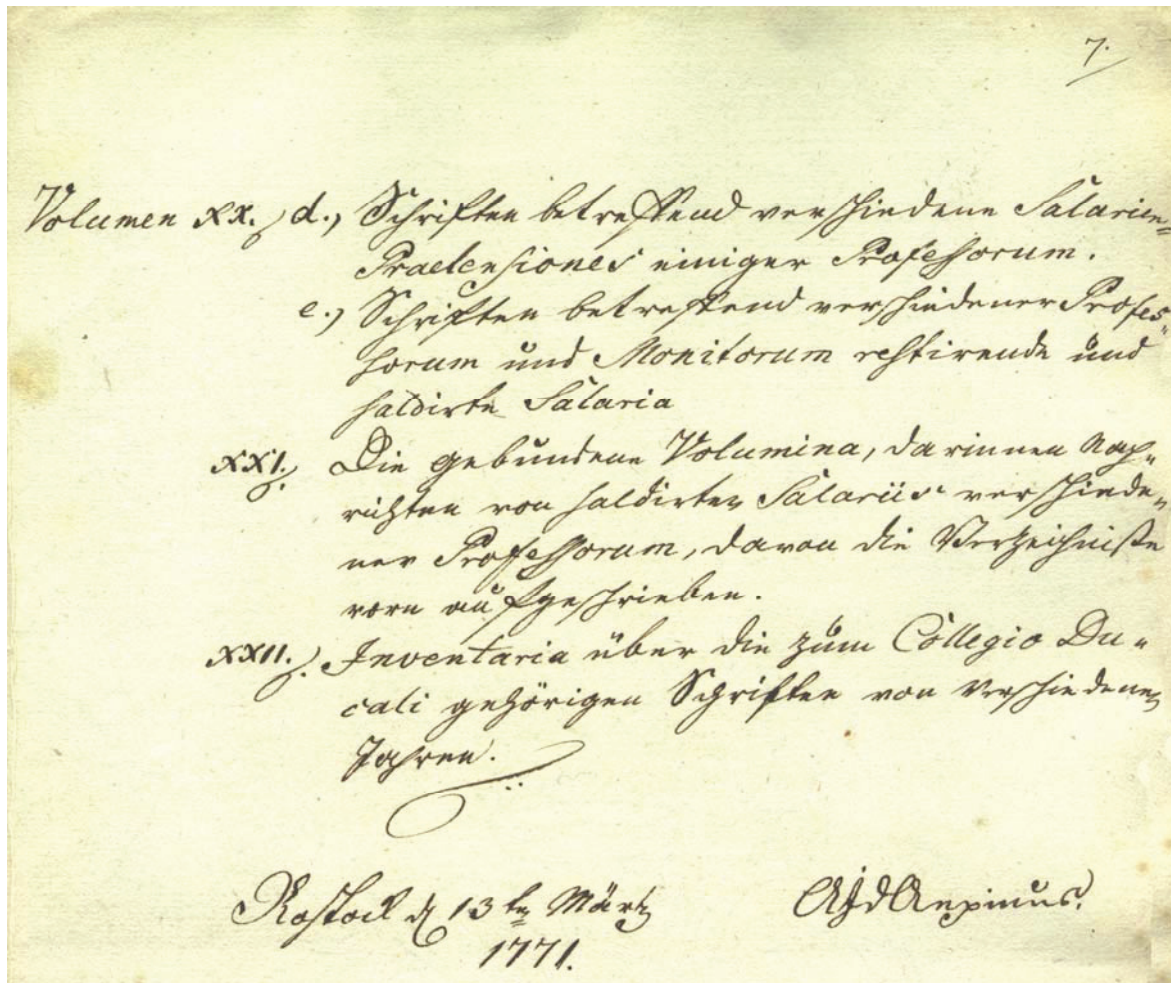 7.
Volumen XX. d.) Schriften betreffend verschiedene Salarien-
Praetensiones einiger Professorum.
e.) Schriften betreffend verschiedener Profes-
sorum und Monitorum restirende und
saldirte Salaria
XXI. Die gebundene Volumina, darinnen Nach-
richten von saldirten Salariis verschiede-
ner Professorum, davon die Verzeichniße
vorn aufgeschrieben.
XXII. Inventaria über die zum Collegio Du-
cali gehörigen Schriften von verschiedenen
Jahren.
Rostock d 13ten Märtz AJDAepinus.
1771.